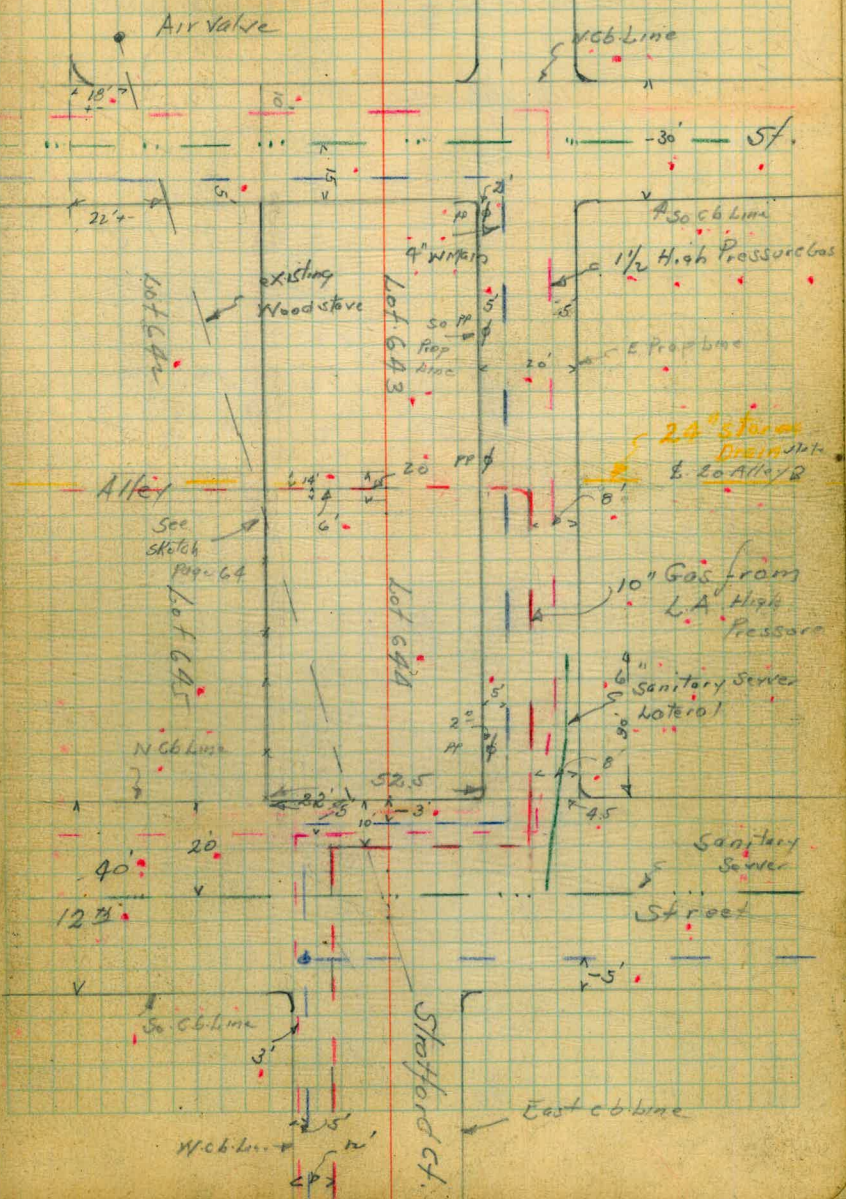 Air Valve
N.Cb.Line
18'
+-
10'
-30'
St.
15
5'
22'+-
2'
PP
4" W Main
So Cb Line
1 1/2 High Pressure Gas
existing
Wood stave
Lot 642
Lot 643
5'
So PP
Prop
Line
5'
20'
E Prop Line
24" Storm
Drain
PP
Alley
14'
4
6'
20
8'
See
sketch
Page 64
10" Gas from
LA High
Pressure
Lot 645
Lot 644
6"
Sanitary Sewer
Lateral
90'
5'
2'
PP
8
N Cb Line
52.5
22'
5'
-3'
10
4.5
40'
20'
Sanitary
Sewer
12th
Street
-5'
So. Cb. Line
3'
Stratford Ct.
East cb Line
5'
W. cb. Line
12'